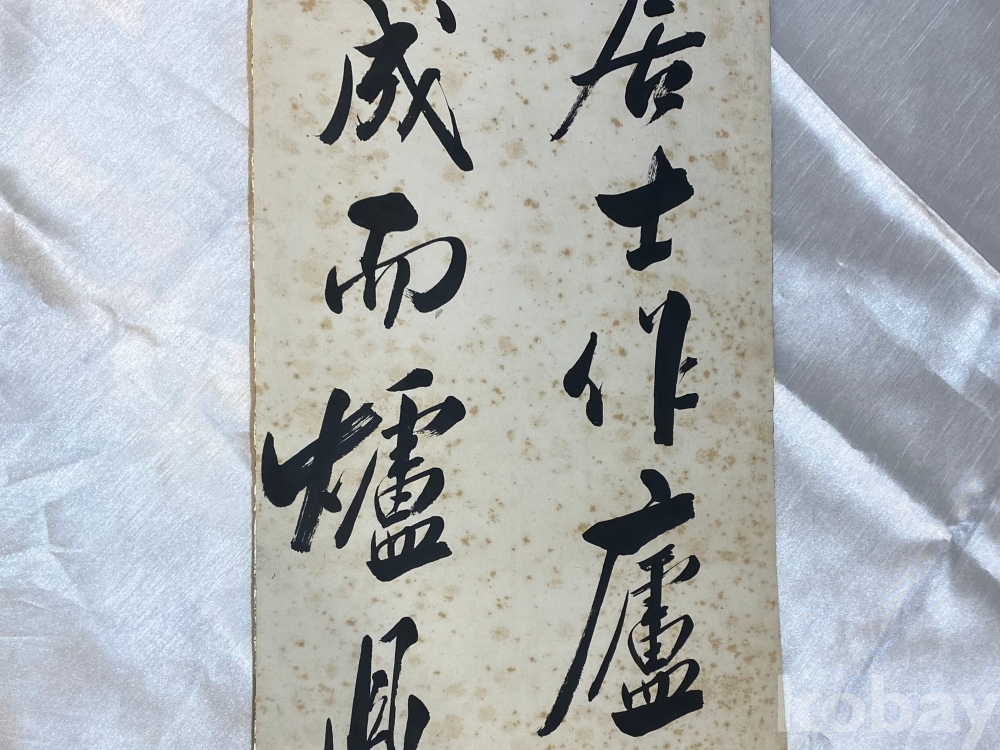 居士作廬
成而爐
kobay